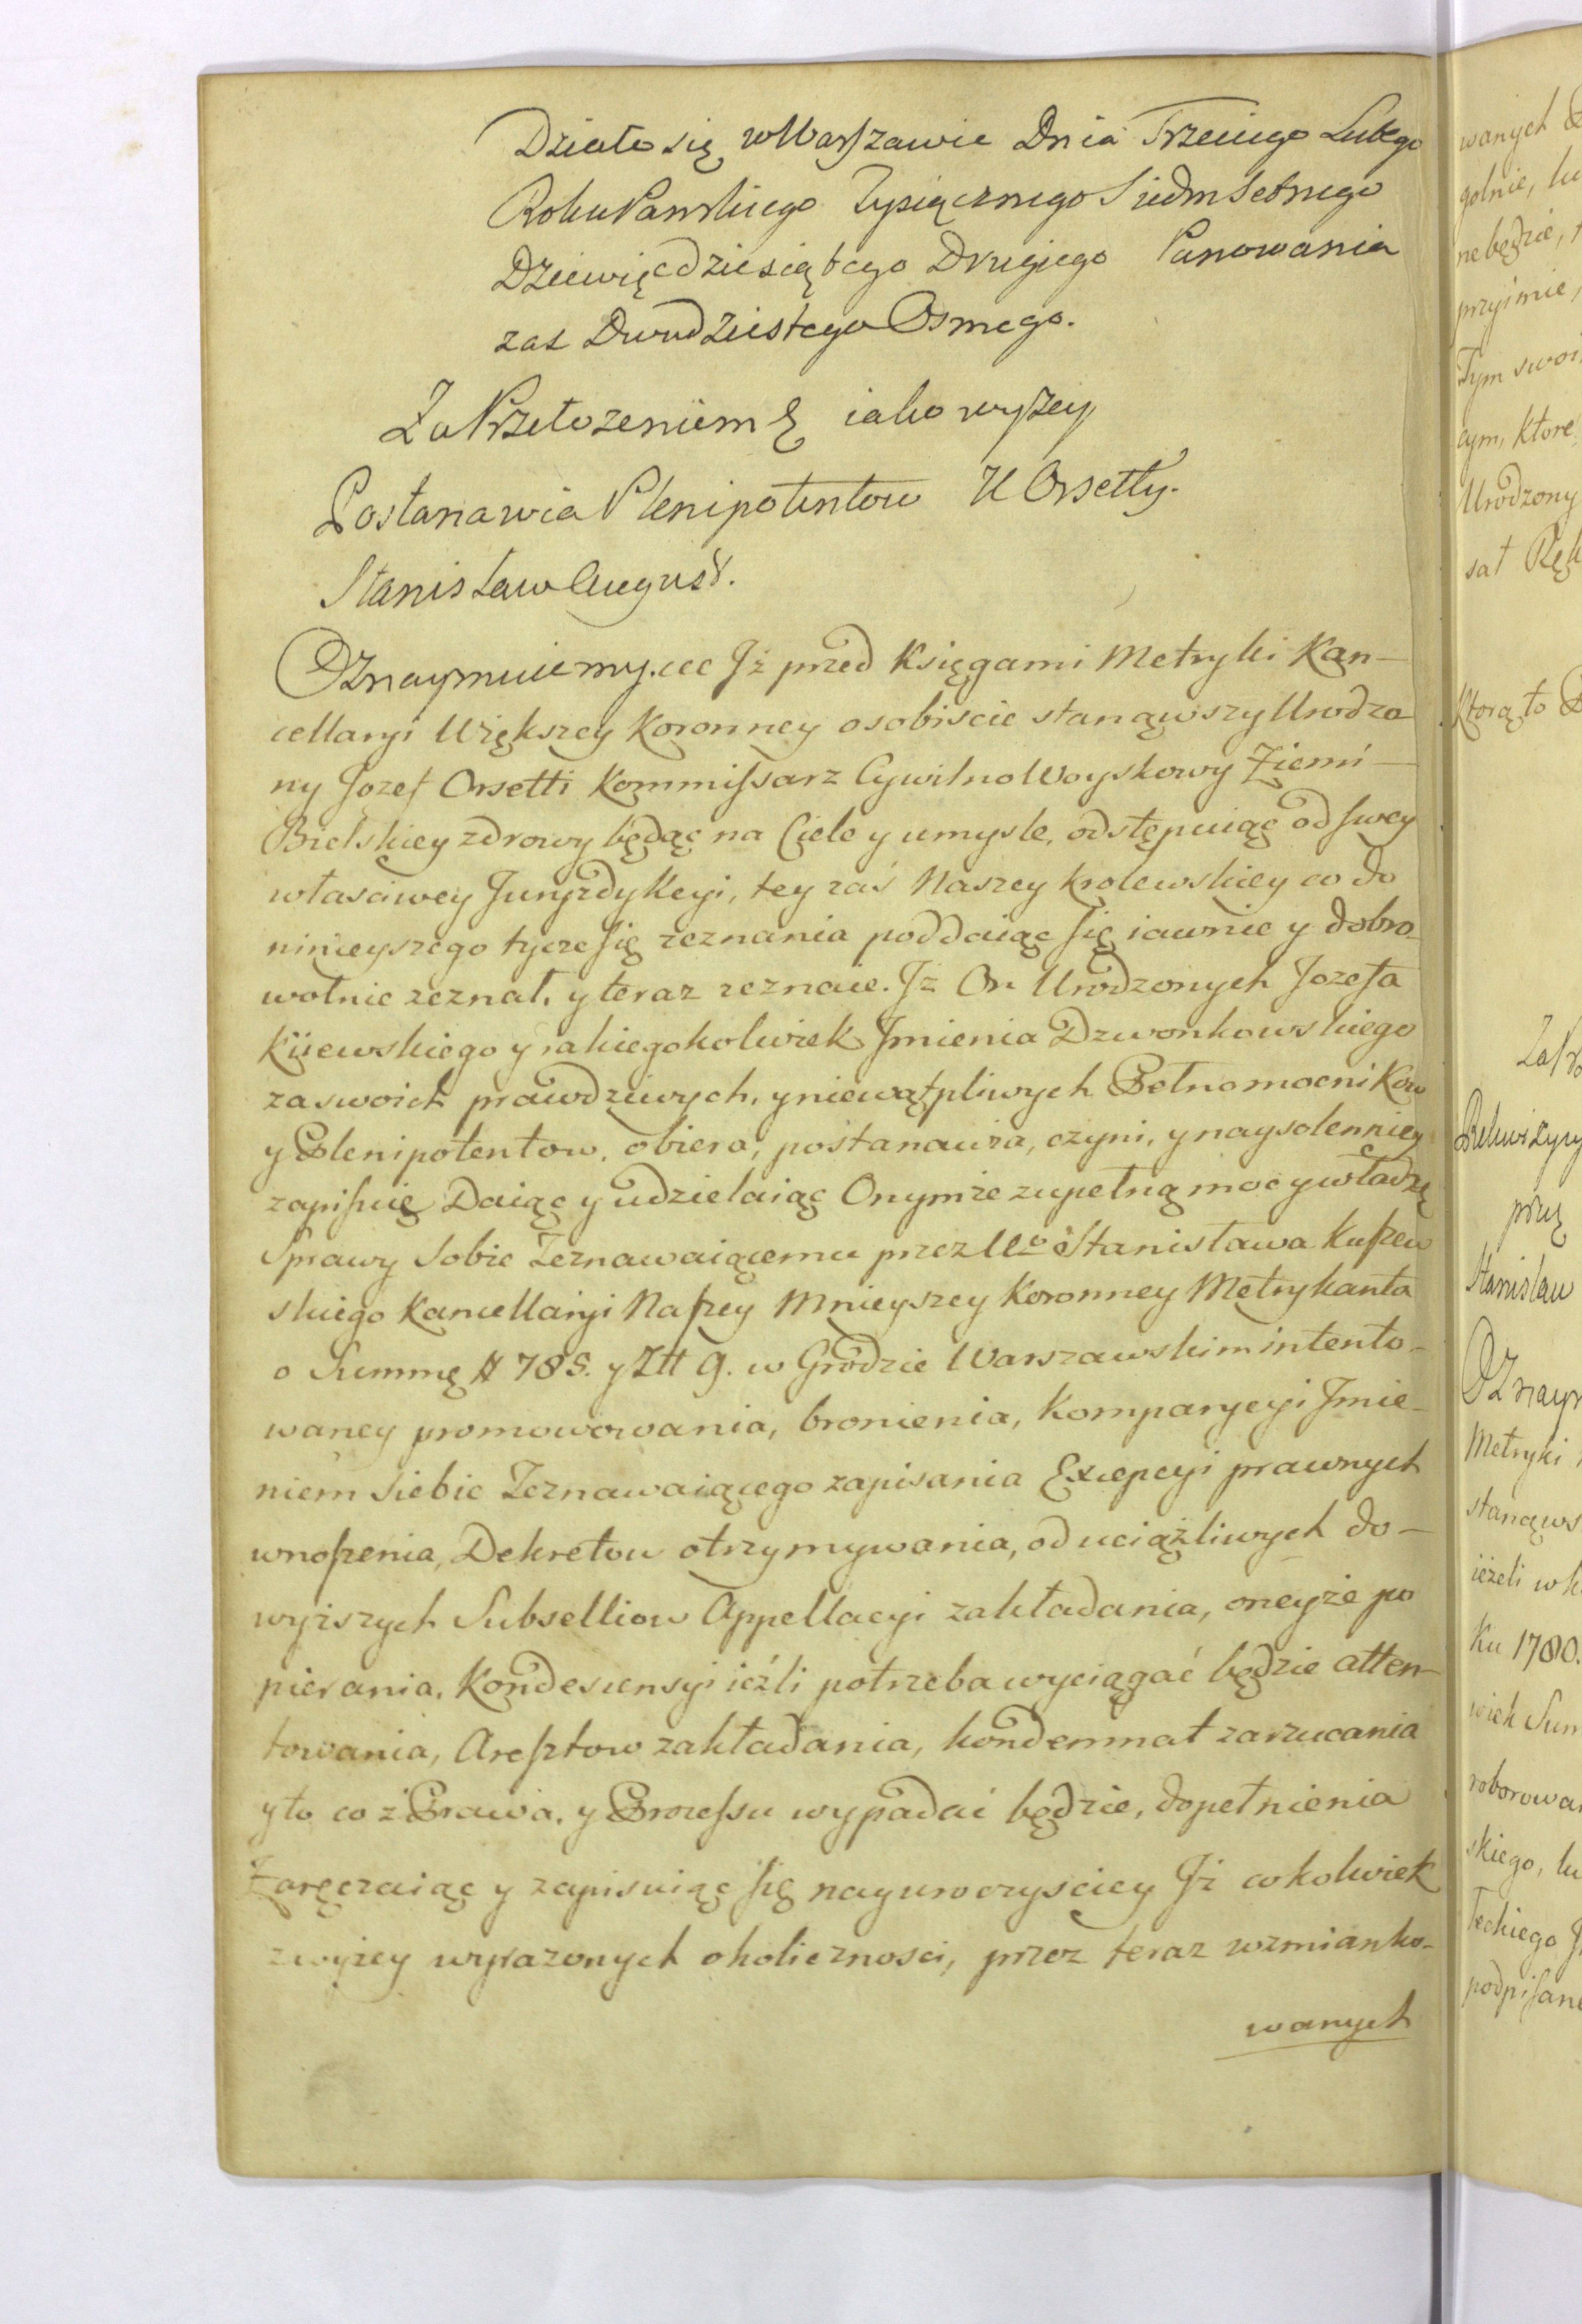 Działo się w Warszawie Dnia Trzeciego Lutego
Roku Pańskiego Tysiącznego Siedmsetnego
Dziewięcdziesiątego Drugiego Panowania
zas Dwudziestego Osmego.
Za Przełozeniem iako wyżey
Postanawia Plenipotentow U Orsetty.
Stanisław August.
Oznaymuiemy. etc Jż przed Księgami Metryki Kan-
cellaryi Większey Koronney osobiscie stanąwszy Urodzo
ny Jozef Orsetti Kommissarz Cywilno Woyskowy Ziemi
Bielskiey zdrowy będąc na Ciele y umysle, odstępuiąc od swey
własciwey Juryzdykcyi, tey zaś Naszey krolewskiey co do
ninieyszego tycze się zeznania poddaiąc się iawnie y dobro-
wolnie zeznał, y teraz zeznaie. Jż On Urodzonych Jozefa
Kiiewskiego y iakiegokolwiek Jmienia Dzwonkowskiego
za swoich prawdziwych, y niewątpliwych Pełnomocnikow
y Plenipotentow, obiera, postanawia, czyni, y naysolenniey
zapisuię Daiąc y udzielaiąc Onymże zupełną moc y władzę
Sprawy Sobie Zeznawaiącemu przez Ur̃o Stanisława Kuszew
skiego Kancellaryi Naszey Mnieyszey Koronney Metrykanta
o Summę # 785. y Złł 9. w Grodzie Warszawskim intento-
waney promowowania, bronienia, Komparycyi Jmie-
niem siebie Zeznawaiącego zapisania Excepcyi prawnych
wnoszenia, Dekretow otrzymywania, od uciążliwych do-
wyższych Subselliow Appellacyi zakładania, oneyże po
pierania, Kondescensyi ieżli potrzeba wyciągać będzie atten-
towania, Aresztow zakładania, kondemnat zarzucania
y to co z Prawa, y Processu wypadać będzie, dopełnienia
Zaręczaiąc y zapisuiąc się nayuroczyściey Jż cokolwiek
zwyżey wyrazonych okolicznosci, przez teraz wzmianko-
wanych
wanych
golnie, lu
nebędzie,
przyimie,
Tym swoi
cym, Ktore
Urodzony
sał Ręk
Ktorą to
Stanisław
Oznaym
Metryki
stanąws
ieżeli w
Ku 1780.
wiek Sum
roborowan
skiego, lu
teckiego
podpisane